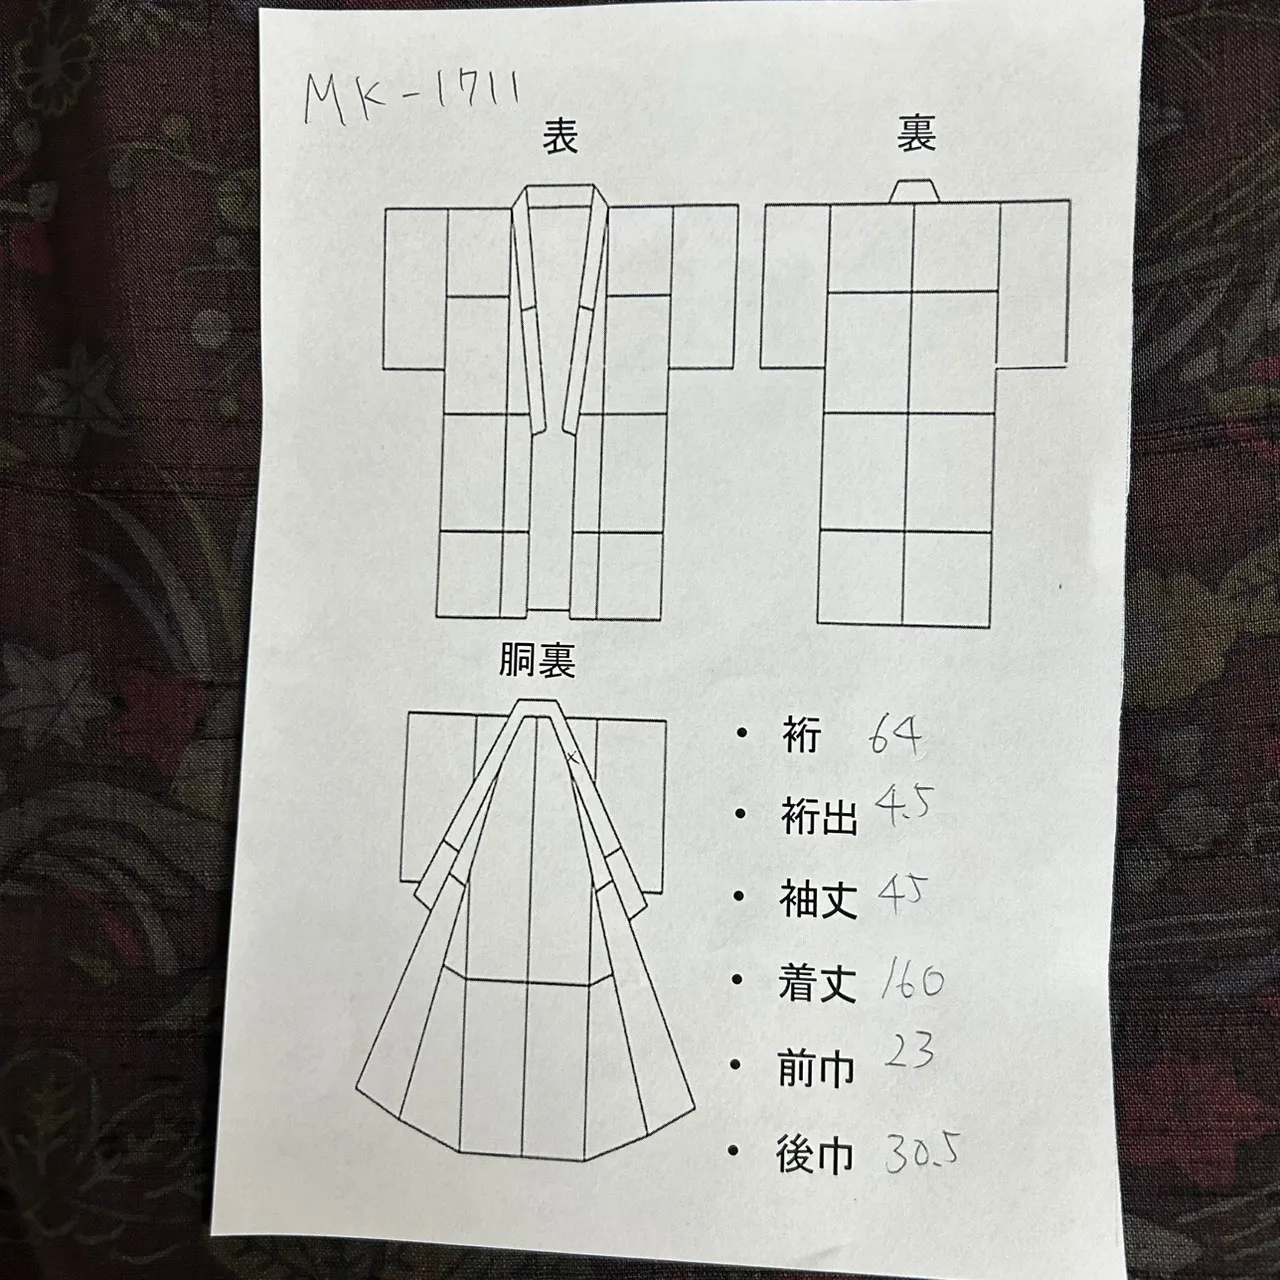 MK-1711
表
裏
胴裏
×
・ 裄 64
・ 裄出 4.5
・ 袖丈 45
・ 着丈 160
・ 前巾 23
・ 後巾 30.5